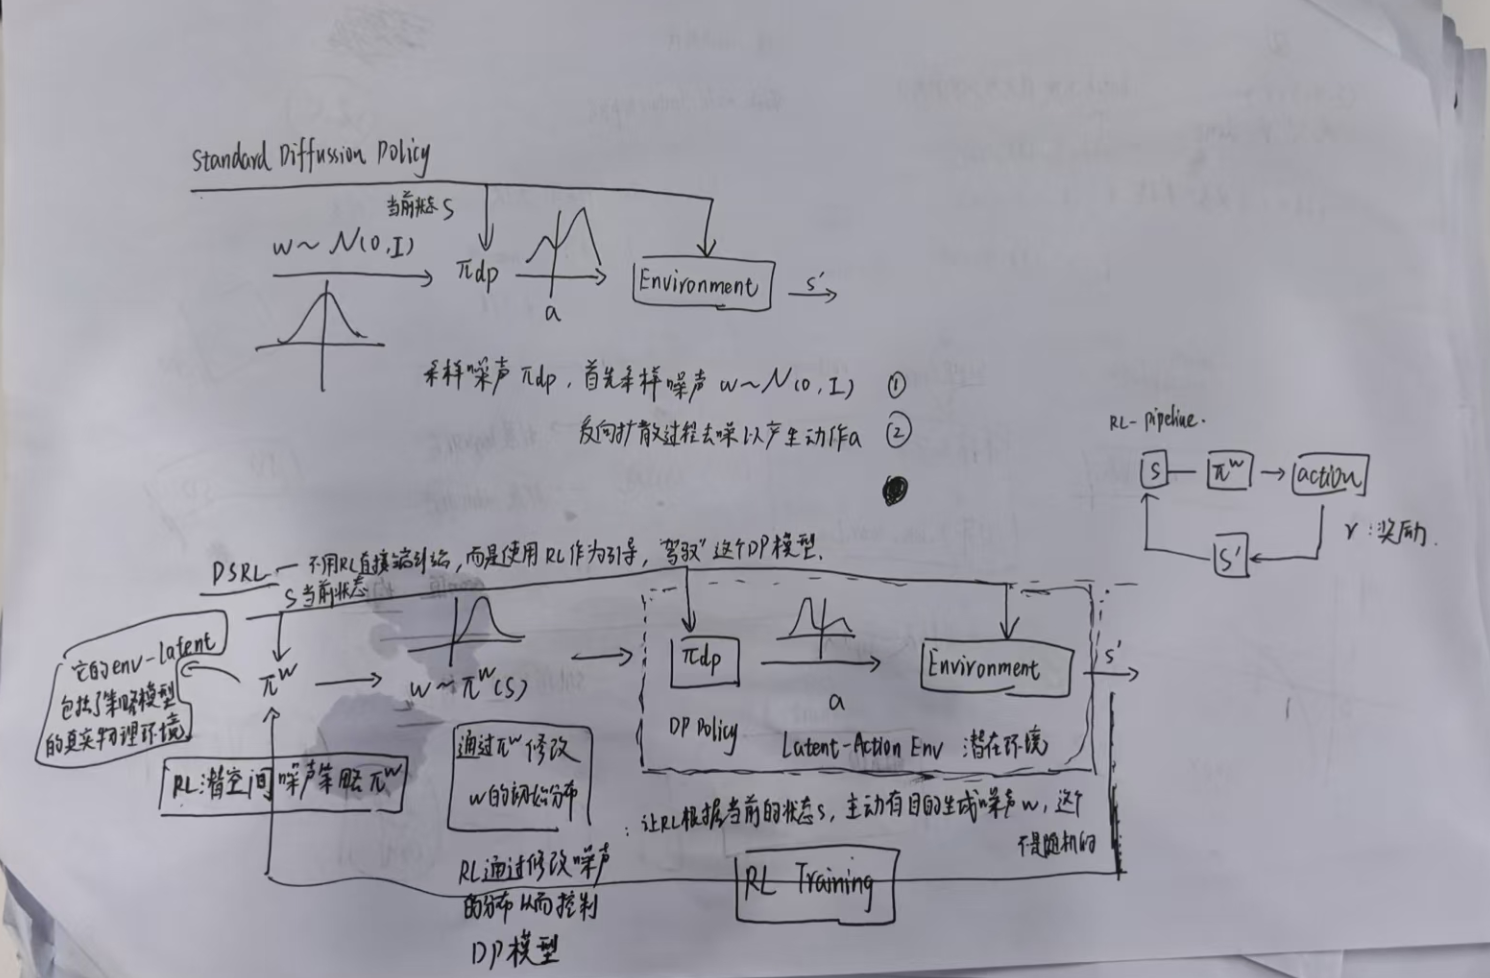 Standard Diffussion Policy
当前状态 S
w ~ N(0, I)
πdp
a
Environment
s'
采样噪声 πdp, 首先采样噪声 w ~ N(0, I) ①
反向扩散过程去噪以产生动作a ②
RL-pipeline.
S
π^w
action
r : 奖励.
S'
DSRL — 不用RL直接端到端, 而是使用 RL 作为引导, "驾驶" 这个DP模型.
S 当前状态
它的env-latent
包括了策略模型
的真实物理环境
π^w
w ~ π^w(s)
πdp
DP Policy
a
Environment
s'
Latent-Action Env 潜在环境
RL:潜空间噪声策略 π^w
通过π^w 修改
w的初始分布
: 让RL根据当前的状态s, 主动有目的生成噪声w, 这个
不是随机的
RL 通过修改噪声
的分布从而控制
DP模型
RL Training